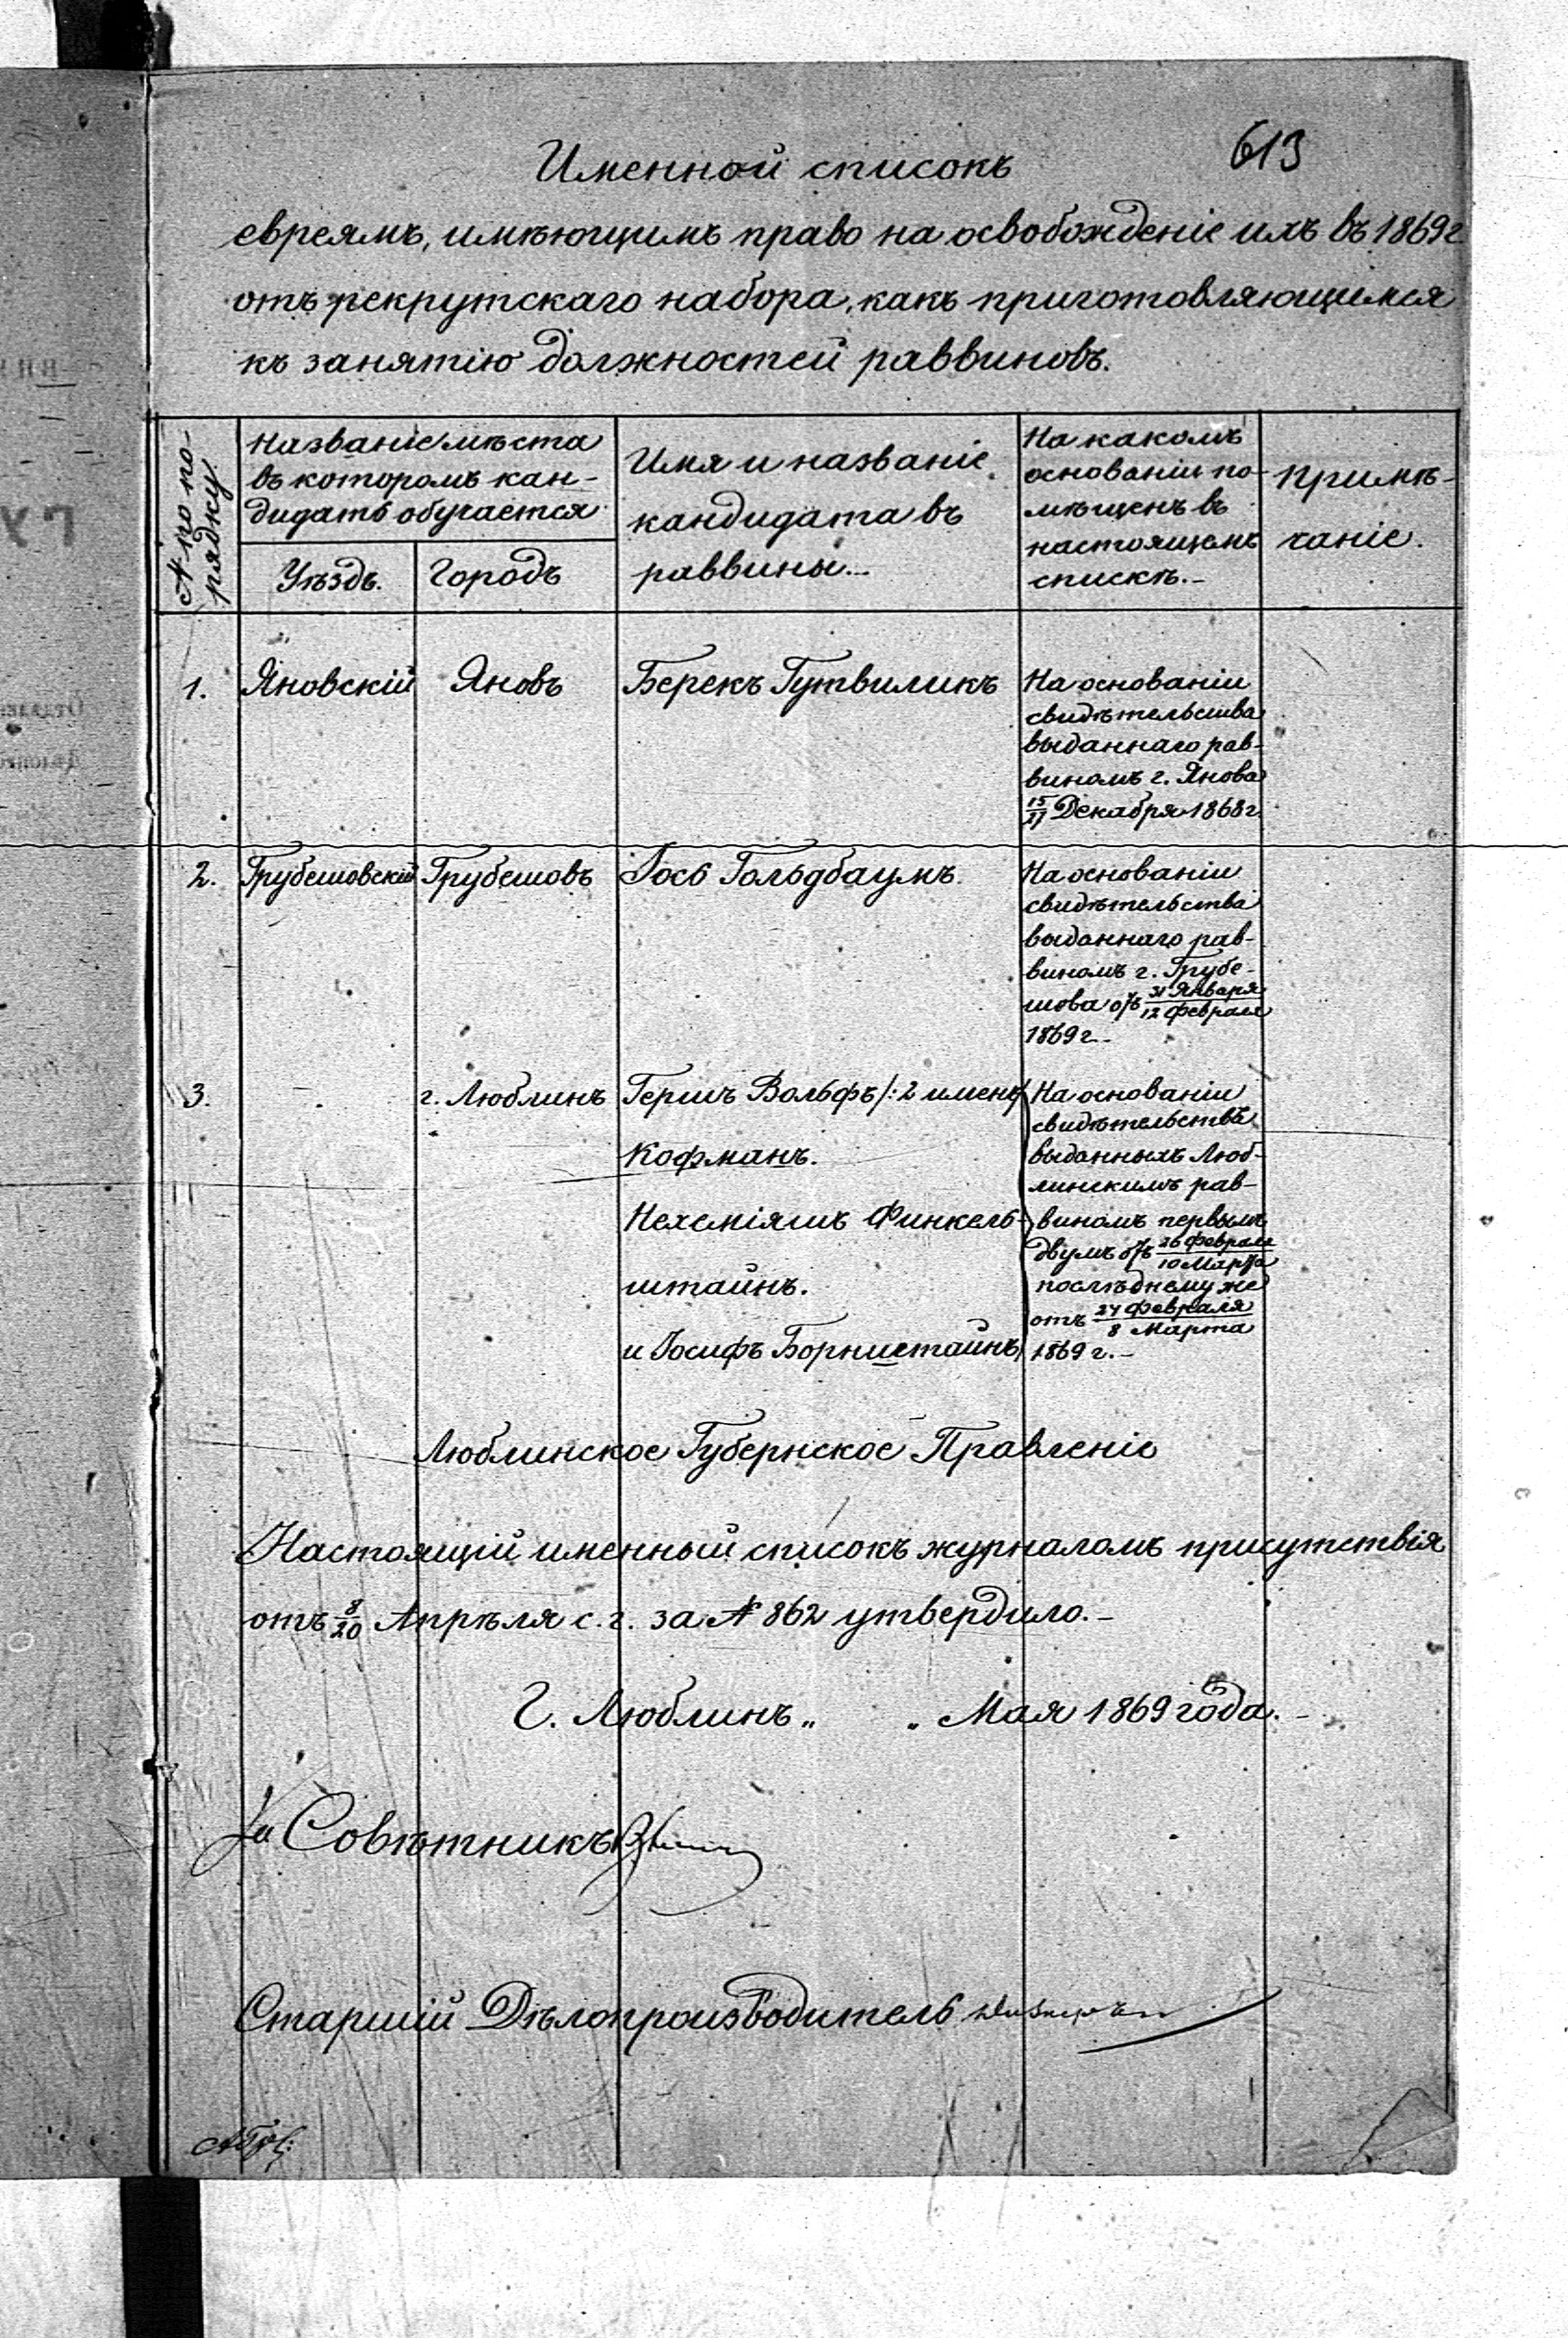 613
Именной списокъ
евреямъ, имѣющимъ право на освобожденіе ихъ въ 1869 г
отъ рекрутскаго набора, какъ приготовляющимся
къ занятію должностей раввиновъ.
№ по по-
рядку
Названіе мѣста
въ которомъ кан-
дидатъ обучается
Уѣздъ.
Городъ
Имя и названіе
кандидата въ
раввины.
На какомъ
основаніи по-
мѣщенъ въ
настоящемъ
спискѣ.-
Примѣ-
чаніе.
1.
Яновскій
Яновъ
Берекъ Гутвиликъ
На основаніи
свидѣтельства
выданнаго рав-
виномъ г. Янова
15/27 Декабря 1868 г.
2.
Грубешовскій
Грубешовъ
Іось Гольдбаумъ.
На основаніи
свидѣтельства
выданнаго рав-
виномъ г. Грубе-
шова отъ 31 Января/12 Февраля
1869 г.-
3.
-
г. Люблинъ
Гершъ Вольфъ /:2 именъ/
Кофманъ.
Нехеміяшъ Финкель-
штайнъ.
и Іосифъ Борништайнъ
На основаніи
свидѣтельствъ
выданныхъ Люб-
линскимъ рав-
виномъ первымъ
двумъ отъ 26 Февраля/10 Марта
послѣднему же
отъ 24 Февраля/8 Марта
1869 г.-
Люблинское Губернское Правленіе
Настоящій именный списокъ журналомъ присутствія
отъ 8/20 Апрѣля с. г. за № 862 утвердило.-
Г. Люблинъ „ „ Мая 1869 года.-
За Совѣтникъ
Старшій Дѣлопроизводитель